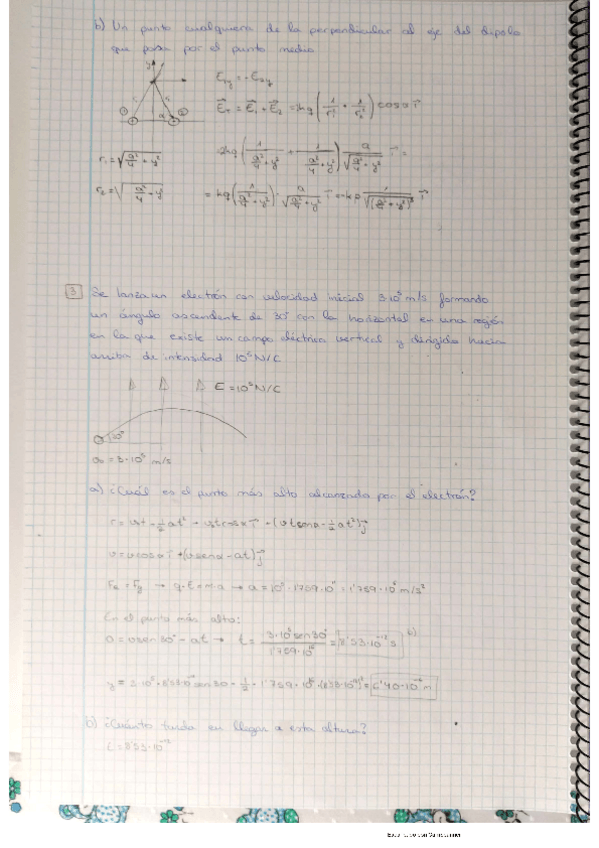 b) Un punto cualquiera de la perpendicular al eje del dipolo
que pasa por el punto medio
y
E₁y = -E₂y
E⃗ₜ = E⃗₁ + E⃗₂ = kq(1/r₁² + 1/r₂²) cosα i⃗
r₁ = √(a²/4 + y²)
kq(1/(a²/4 + y²) + 1/(a²/4 + y²)) a/√(a²/4 + y²) i⃗ =
r₂ = √(a²/4 + y²)
= kq(1/(a²/4 + y²)) · a/√(a²/4 + y²) i⃗
3 Se lanza un electrón con velocidad inicial 3·10⁵ m/s formando
un ángulo ascendente de 30° con la horizontal en una región
en la que existe un campo eléctrico vertical y dirigido hacia
arriba de intensidad 10⁵ N/C
E = 10⁵ N/C
30°
= 3·10⁵ m/s
a) ¿Cuál es el punto más alto alcanzado por el electrón?
v = v cosα i⃗ + (v senα - at) j⃗
→ q·E = m·a → a = 10⁵ · 1'759·10¹¹ = 1'759·10¹⁶ m/s²
En el punto más alto:
0 = v sen 30° - at → t = 3·10⁵ sen 30° / 1'759·10¹⁶ = 8'53·10⁻¹² s b)
b) ¿Cuánto tarda en llegar a esta altura?
t = 8'53·10⁻¹²